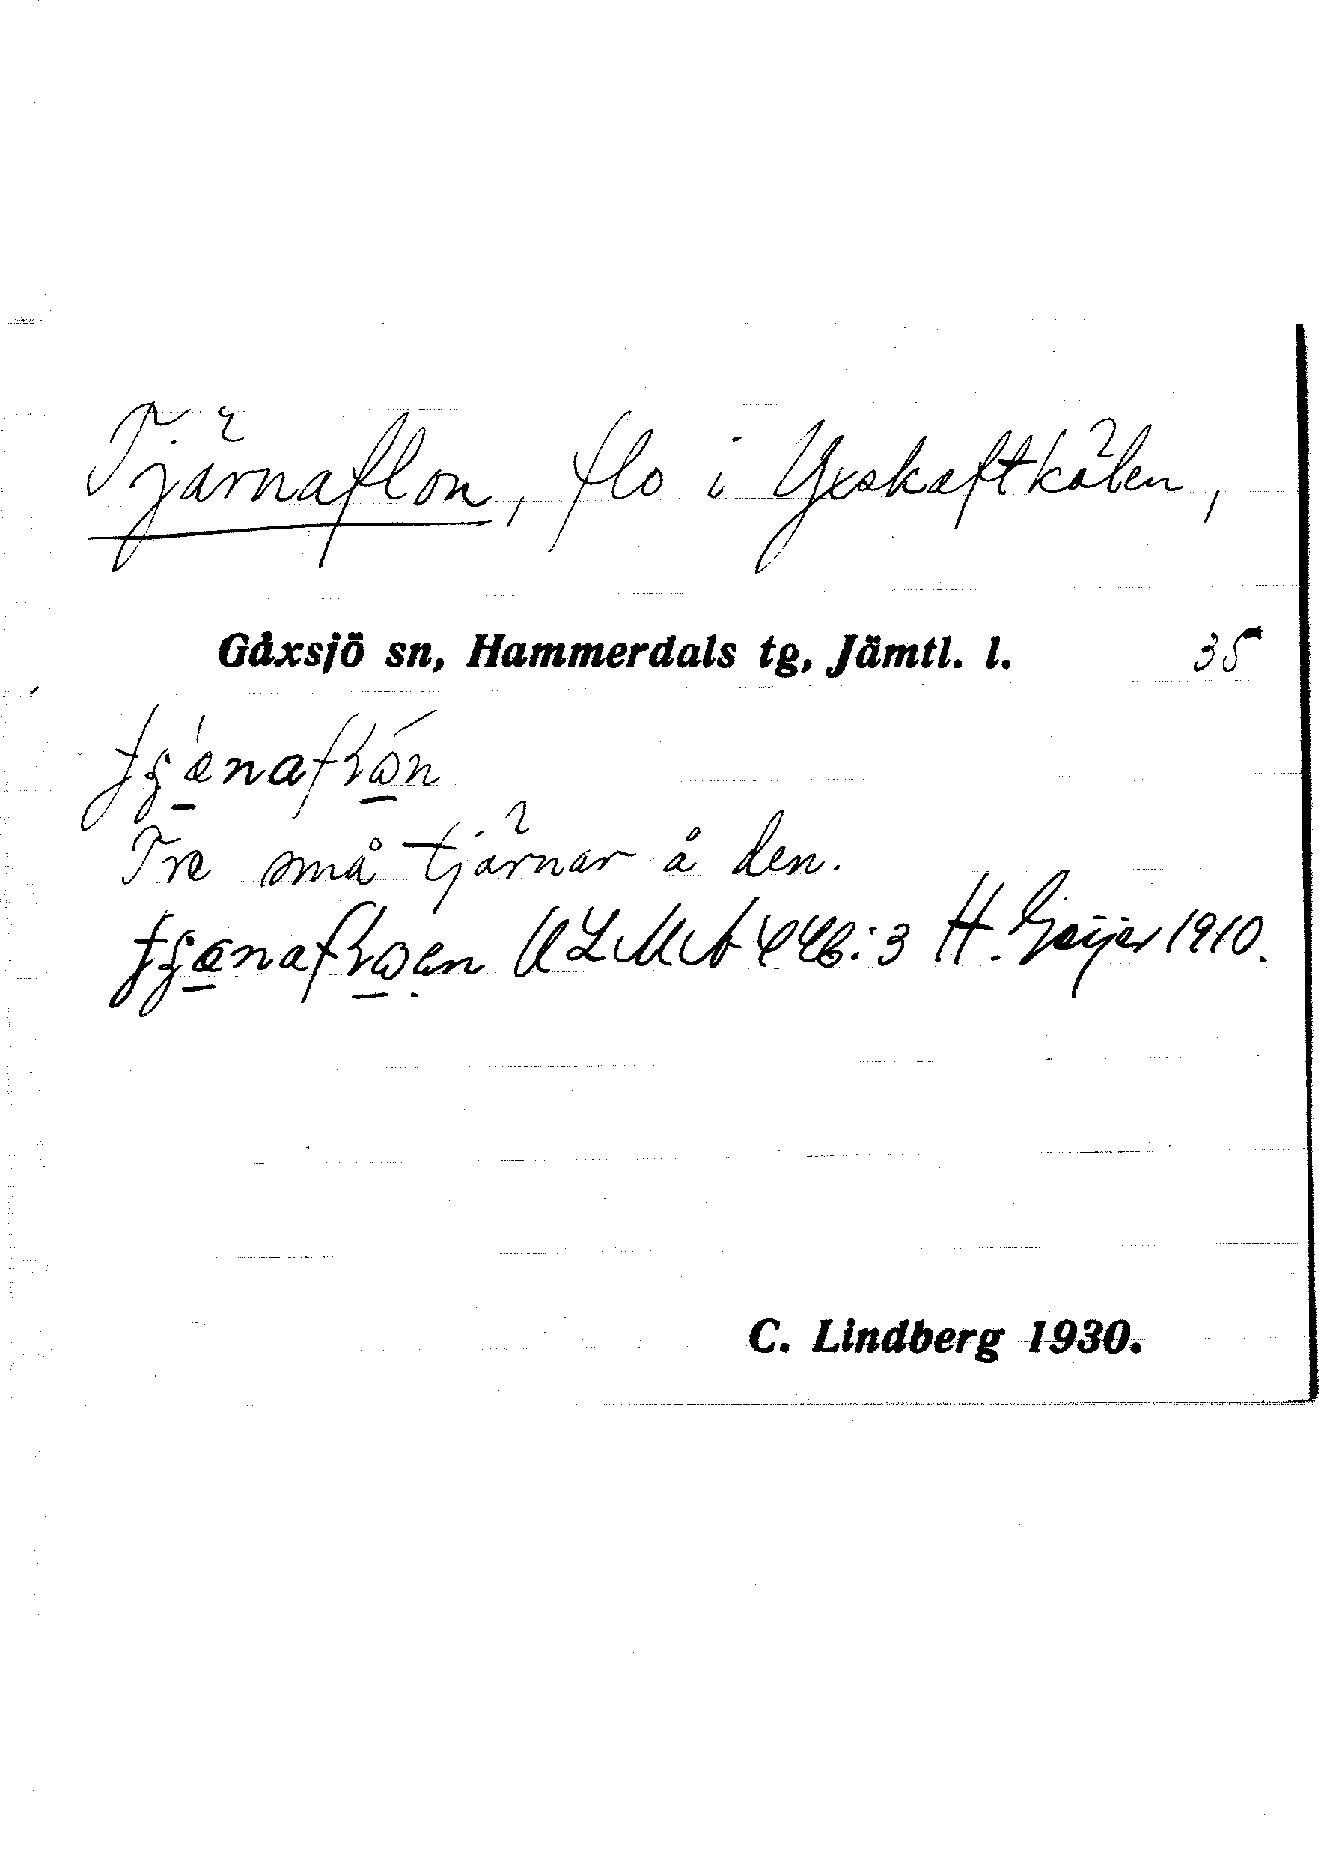 Tjärnaflon, flo i Yxskaftkälen,
Gåxsjö sn, Hammerdals tg, Jämtl. l. 35
Tre små tjärnar å den.
ULMA 446:3 H. Geijer 1910.
C. Lindberg 1930.